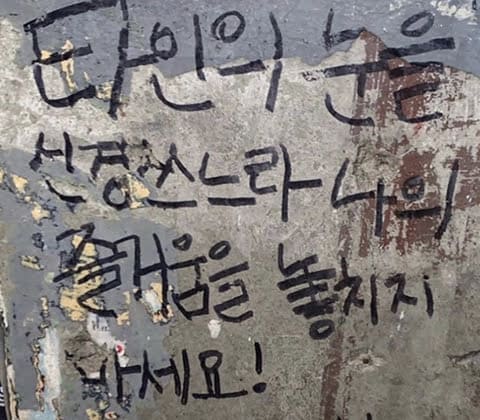 타인의 눈을
신경쓰느라 나의
즐거움을 놓치지
마세요!